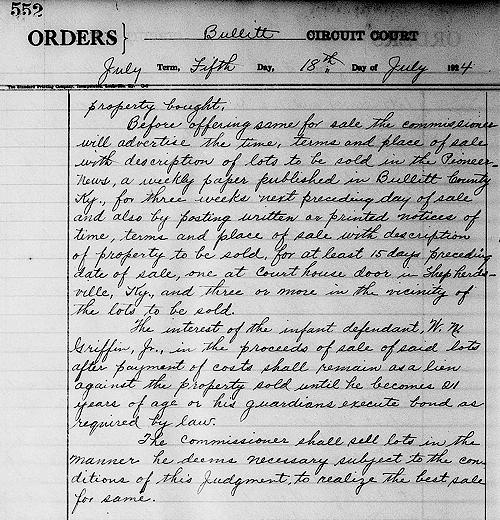 552
ORDERS} Bullitt CIRCUIT COURT
July Term, Fifth Day, 18th Day of July 1924
The Standard Printing Company, Incorporated, Louisville, Ky.
property bought,
Before offering same for sale the commissioner
will advertise the time, terms and place of sale
with description of lots to be sold in the Pioneer-
News, a weekly paper published in Bullitt County
Ky., for three weeks next preceding day of sale
and also by posting written or printed notices of
time, terms and place of sale with description
of property to be sold, for at least 15 days preceding
date of sale, one at court house door in Shepherds-
ville, Ky., and three or more in the vicinity of
the lots to be sold.
The interest of the infant defendant, W. M.
Griffin, Jr., in the proceeds of sale of said lots
after payment of costs shall remain as a lien
against the property sold until he becomes 21
years of age or his guardians execute bond as
required by law.
The Commissioner shall sell lots in the
manner he deems necessary subject to the con-
ditions of this Judgment, to realize the best sale
for same.